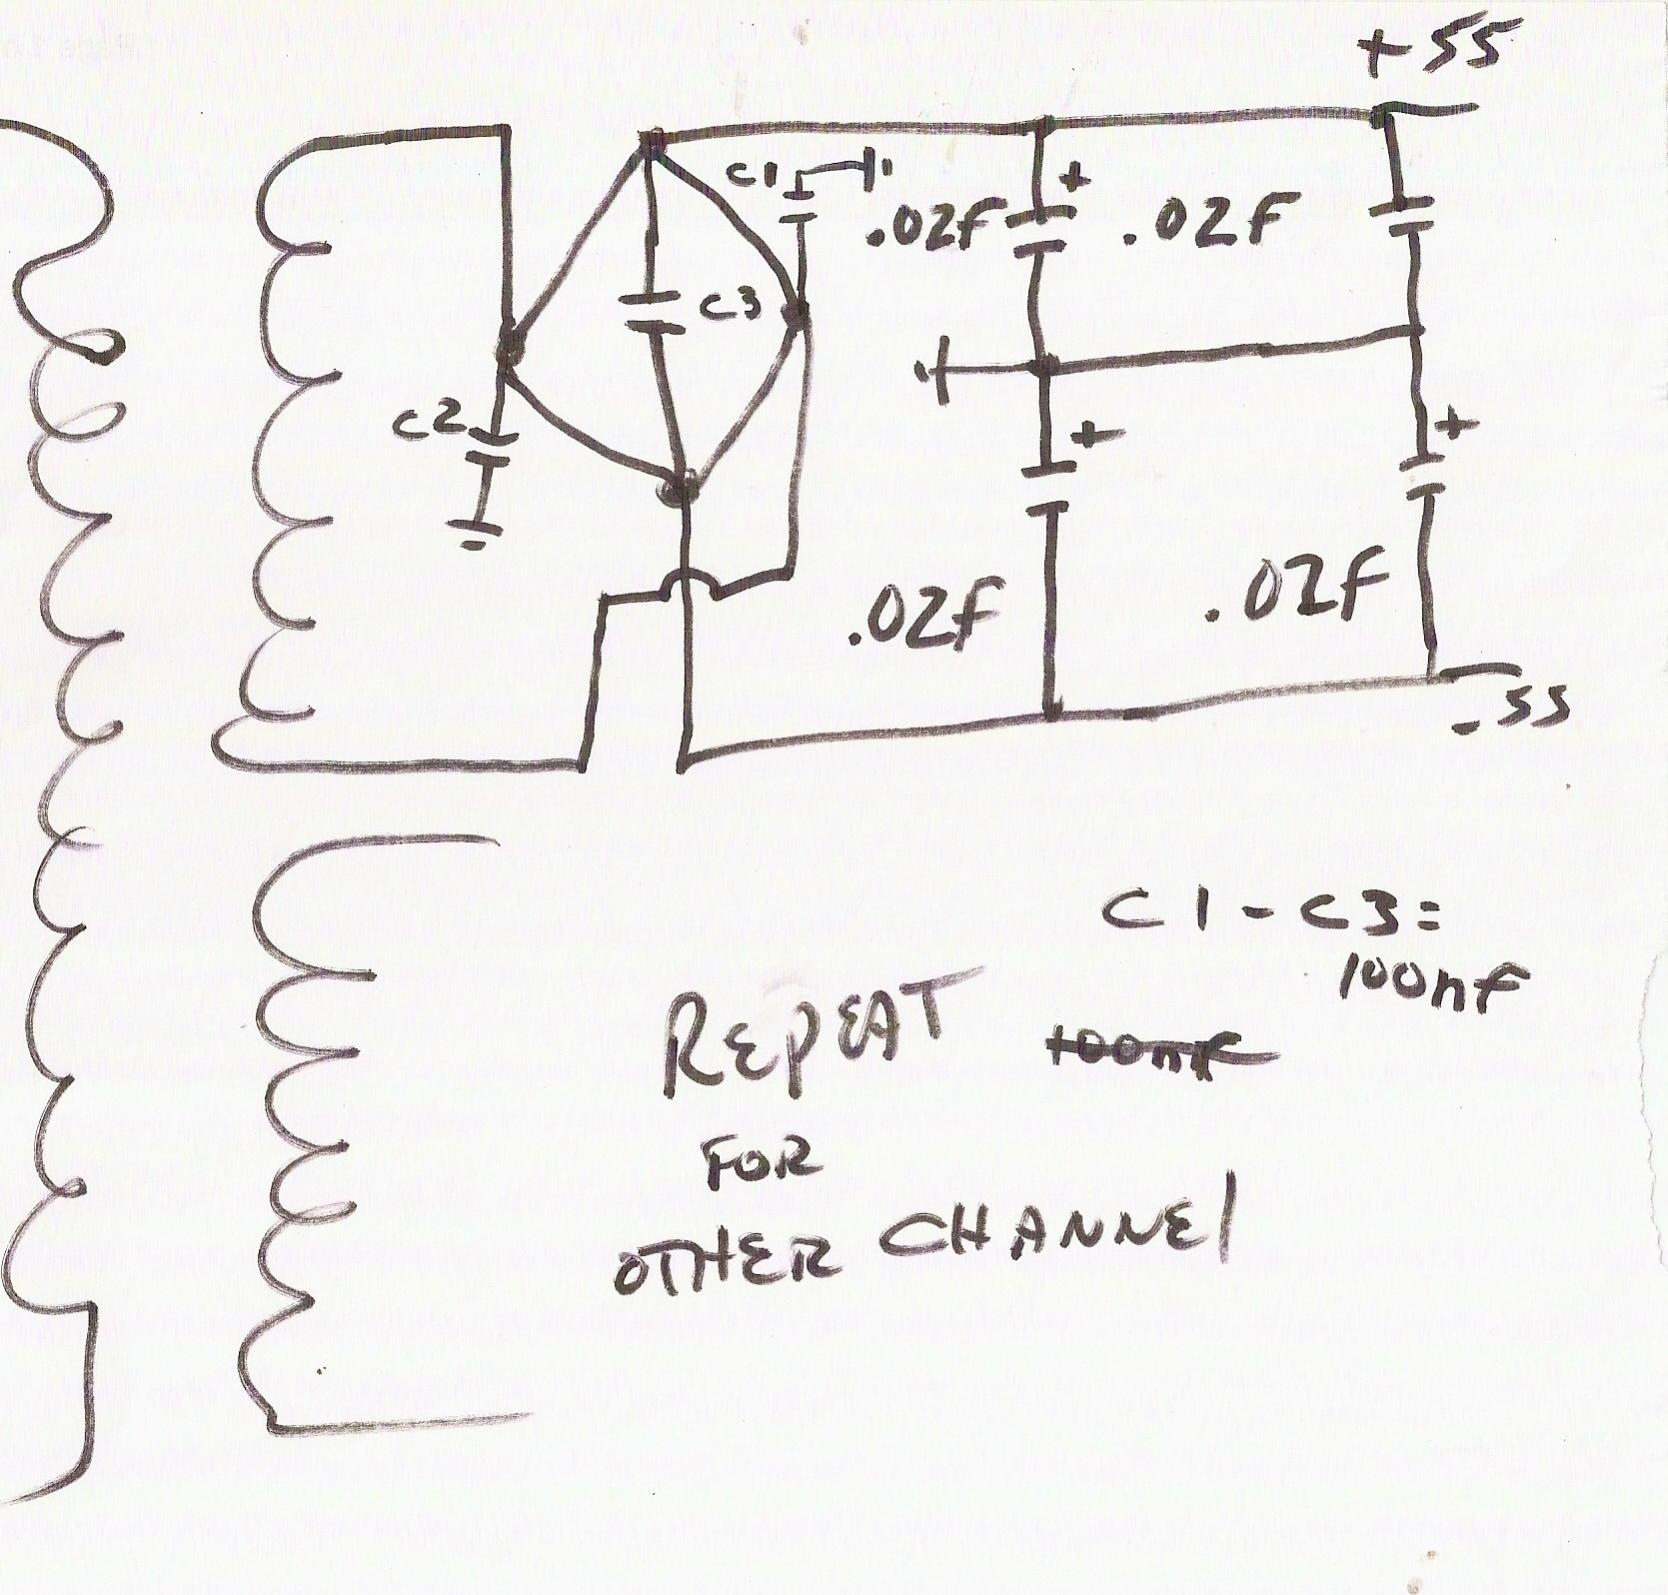 +55
C1
+
.02F
.02F
C3
C2
+
+
.02F
.02F
-55
C1-C3=
100nF
REPEAT
100nF
FOR
OTHER CHANNEL